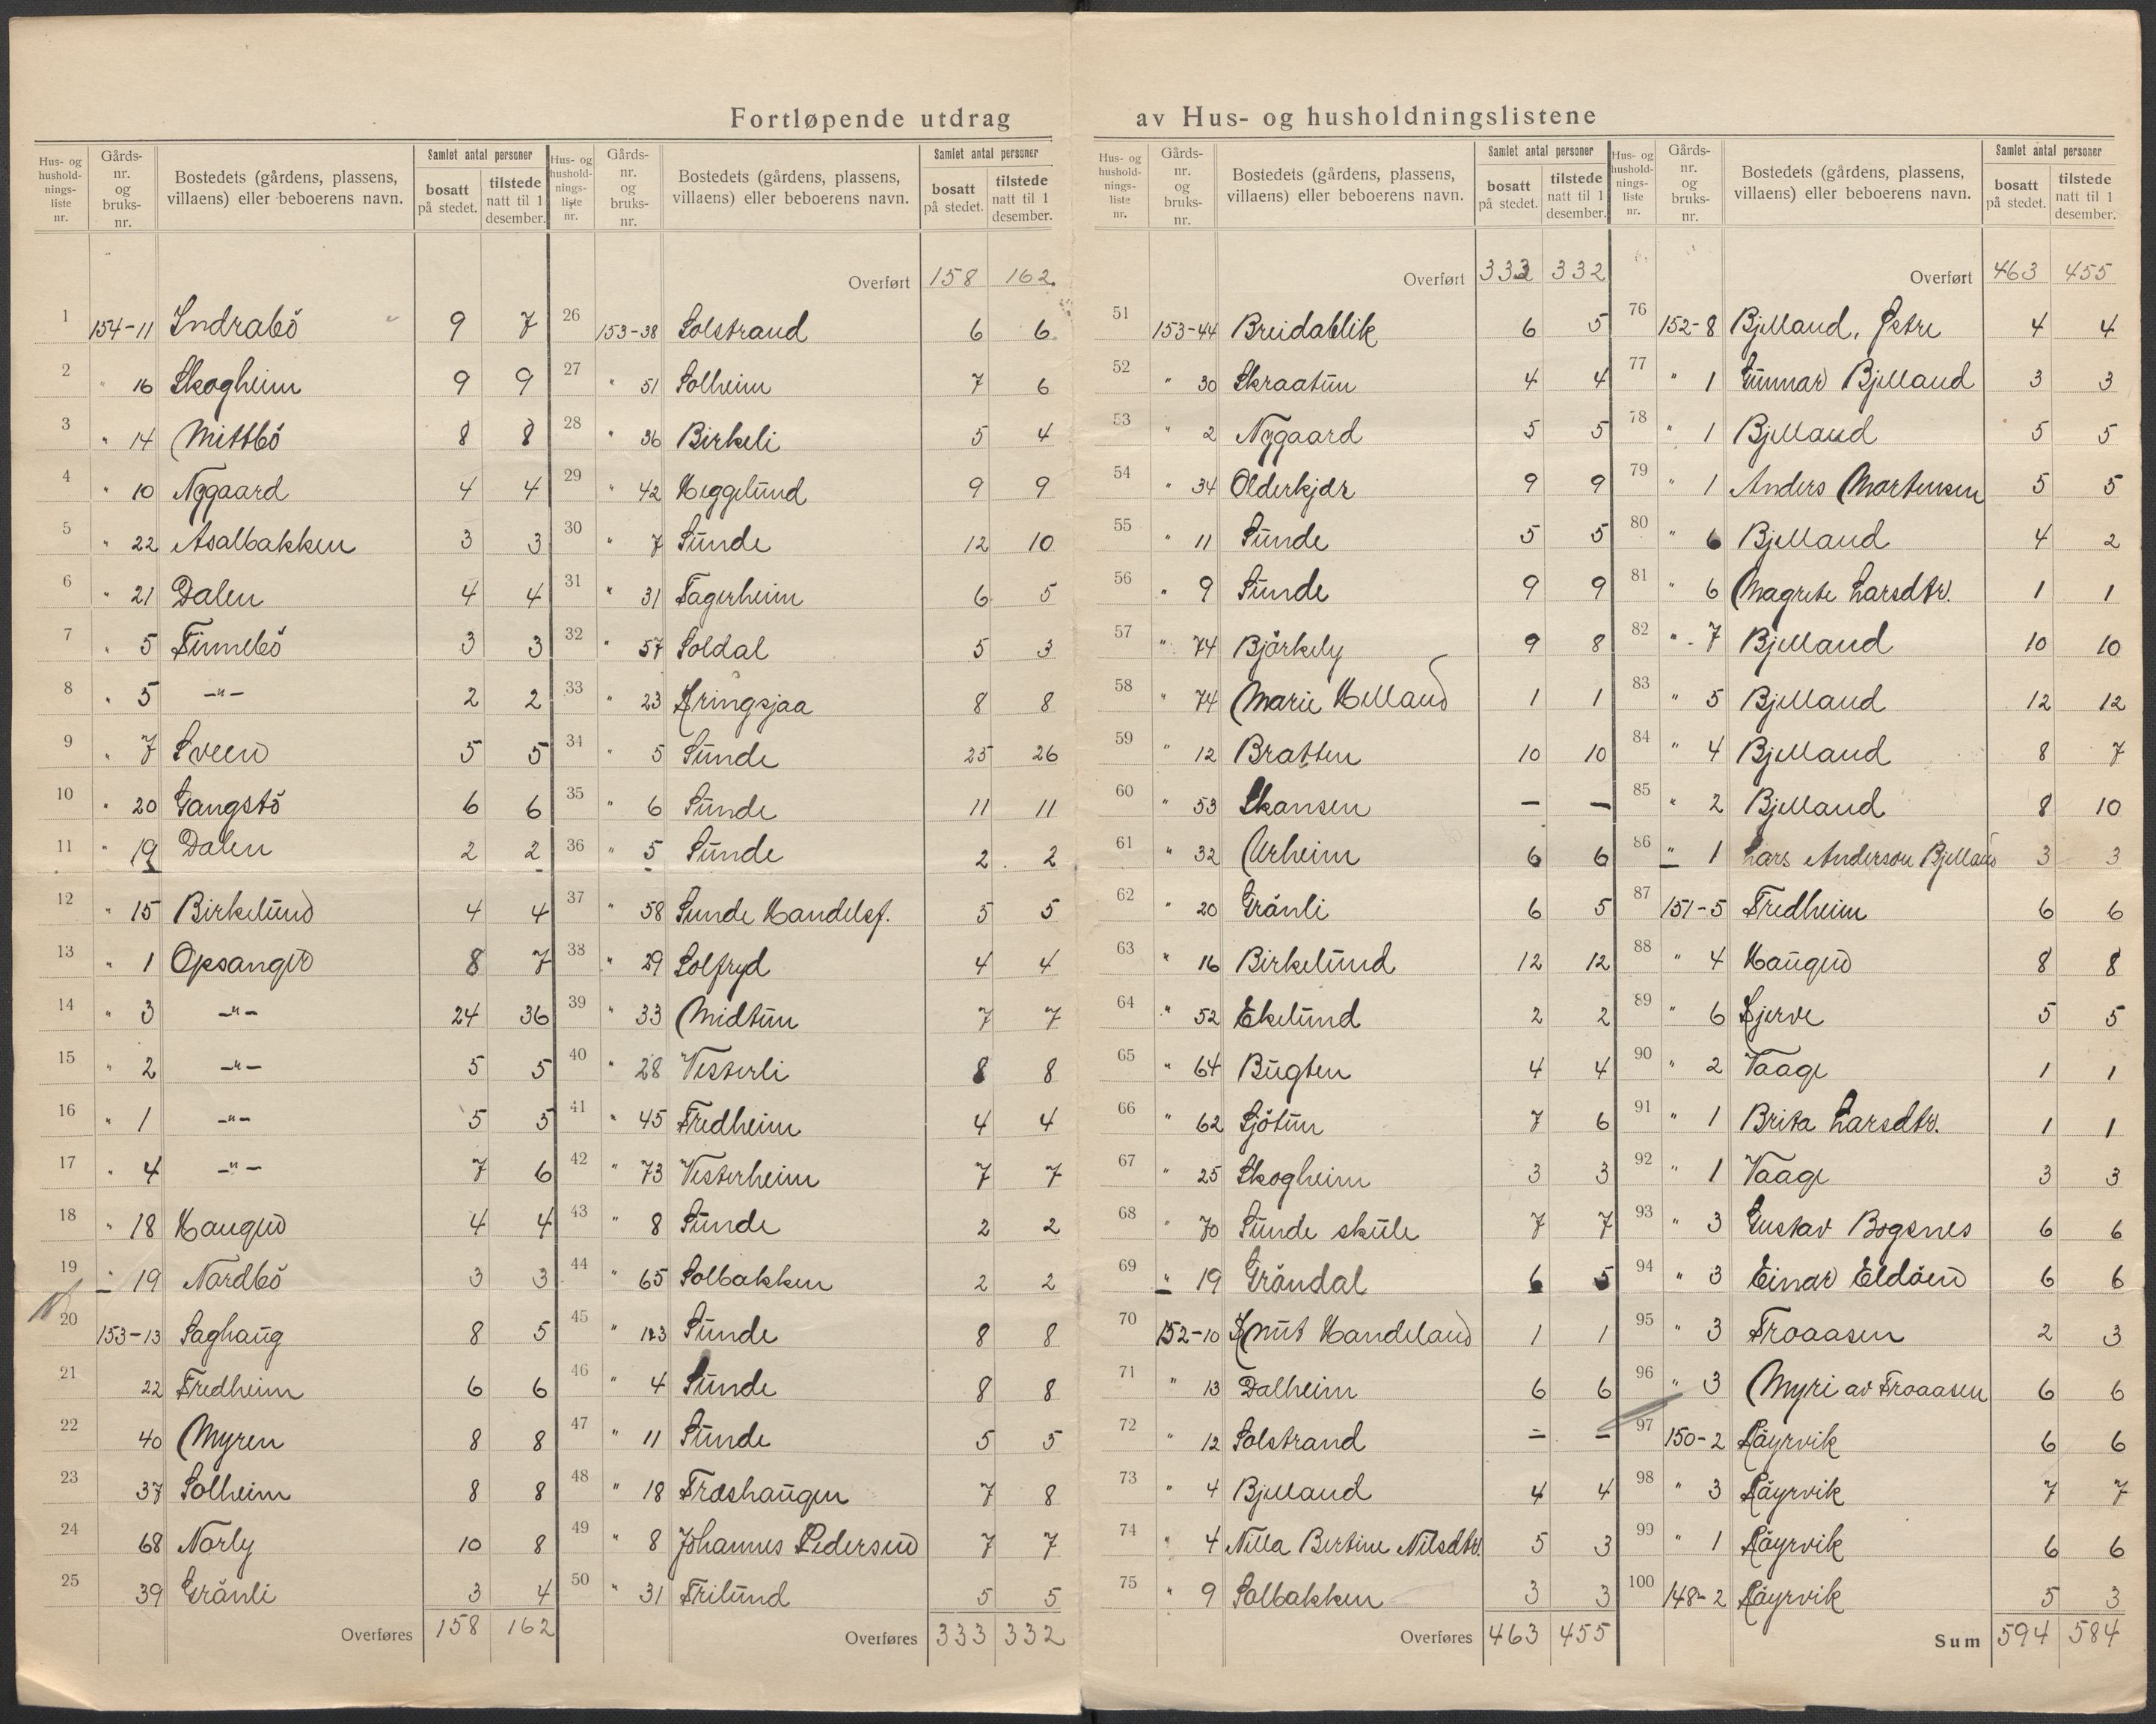 Fortløpende utdrag av Hus- og husholdningslistene
Hus- og hushold- nings- liste nr. | Gårds- nr. og bruks- nr. | Bostedets (gårdens, plassens, villaens) eller beboerens navn. | Samlet antal personer | bosatt på stedet. | tilstede natt til 1 desember.
1 154-11 Indrabö 9 7
2 " 16 Skogheim 9 9
3 " 14 Mittbö 8 8
4 " 10 Nygaard 4 4
5 " 22 Asalbakken 3 3
6 " 21 Dalen 4 4
7 " 5 Finnebö 3 3
8 " 5 -"- 2 2
9 " 7 Sveen 5 5
10 " 20 Gangstö 6 6
11 " 19 Dalen 2 2
12 " 15 Birkelund 4 4
13 " 1 Opsanger 8 7
14 " 3 -"- 24 36
15 " 2 -"- 5 5
16 " 1 -"- 5 5
17 " 4 -"- 7 6
18 " 18 Haugen 4 4
19 " 19 Nordbö 3 3
20 153-13 Saghaug 8 5
21 22 Fredheim 6 6
22 40 Myren 8 8
23 37 Solheim 8 8
24 68 Norly 10 8
25 39 Grönli 3 4
Overføres 158 162
Hus- og hushold- nings- liste nr. | Gårds- nr. og bruks- nr. | Bostedets (gårdens, plassens, villaens) eller beboerens navn. | Samlet antal personer | bosatt på stedet. | tilstede natt til 1 desember.
Overført 158 162
26 153-38 Solstrand 6 6
27 " 51 Solheim 7 6
28 " 36 Birkeli 5 4
29 " 42 Heggelund 9 9
30 " 7 Sunde 12 10
31 " 31 Fagerheim 6 5
32 " 57 Soldal 5 3
33 " 23 Kringsjaa 8 8
34 " 5 Sunde 25 26
35 " 6 Sunde 11 11
36 " 5 Sunde 2 2
37 " 58 Sunde Handelsf. 5 5
38 " 29 Solfryd 4 4
39 " 33 Midtun 7 7
40 " 28 Vesterli 8 8
41 " 45 Fredheim 4 4
42 " 73 Vesterheim 7 7
43 " 8 Sunde 2 2
44 " 65 Solbakken 2 2
45 " Sunde 8 8
46 " 4 Sunde 8 8
47 " 11 Sunde 5 5
48 " 18 Froshaugen 7 8
49 " 8 Johannes Pedersen 7 7
50 " 31 Frilund 5 5
Overføres 333 332
Hus- og hushold- nings- liste nr. | Gårds- nr. og bruks- nr. | Bostedets (gårdens, plassens, villaens) eller beboerens navn. | Samlet antal personer | bosatt på stedet. | tilstede natt til 1 desember.
Overført 333 332
51 153-44 Breidablik 6 5
52 " 30 Skraatun 4 4
53 " 2 Nygaard 5 5
54 " 34 Olderkjær 9 9
55 " 11 Sunde 5 5
56 " 9 Sunde 9 9
57 " 74 Björkely 9 8
58 " 74 Marie Helland 1 1
59 " 12 Bratten 10 10
60 " 53 Skansen - -
61 " 32 Urheim 6 6
62 " 20 Grönli 6 5
63 " 16 Birkelund 12 12
64 " 52 Ekelund 2 2
65 " 64 Bugten 4 4
66 " 62 Sjötun 7 6
67 " 25 Skogheim 3 3
68 " 70 Sunde skule 7 7
69 " 19 Gröndal 6 5
70 152-10 Knut Handeland 1 1
71 " 13 Dalheim 6 6
72 " 12 Solstrand - -
73 " 4 Bjelland 4 4
74 " 4 Nilla Bertine Nilsdtr. 5 3
75 " 9 Solbakken 3 3
Overføres 463 455
Hus- og hushold- nings- liste nr. | Gårds- nr. og bruks- nr. | Bostedets (gårdens, plassens, villaens) eller beboerens navn. | Samlet antal personer | bosatt på stedet. | tilstede natt til 1 desember.
Overført 463 455
76 152-8 Bjelland, Petre 4 4
77 " 1 Gunnar Bjelland 3 3
78 " 1 Bjelland 5 5
79 " 1 Anders Mortensen 5 5
80 " 6 Bjelland 4 2
81 " 6 Magrete Larsdtr. 1 1
82 " 7 Bjelland 10 10
83 " 5 Bjelland 12 12
84 " 4 Bjelland 8 7
85 " 2 Bjelland 8 10
86 " 1 Lars Anderson Bjelland 3 3
87 151-5 Fredheim 6 6
88 " 4 Haugen 8 8
89 " 6 Kjerve 5 5
90 " 2 Vaage 1 1
91 " 1 Brita Larsdtr. 1 1
92 " 1 Vaage 3 3
93 " 3 Gustav Bogsnes 6 6
94 " 3 Einar Eldöen 6 6
95 " 3 Troaasen 2 3
96 " 3 Myri av Troaasen 6 6
97 150-2 Röyrvik 6 6
98 " 3 Röyrvik 7 7
99 " 1 Röyrvik 6 6
100 148-2 Röyrvik 5 3
Sum 594 584